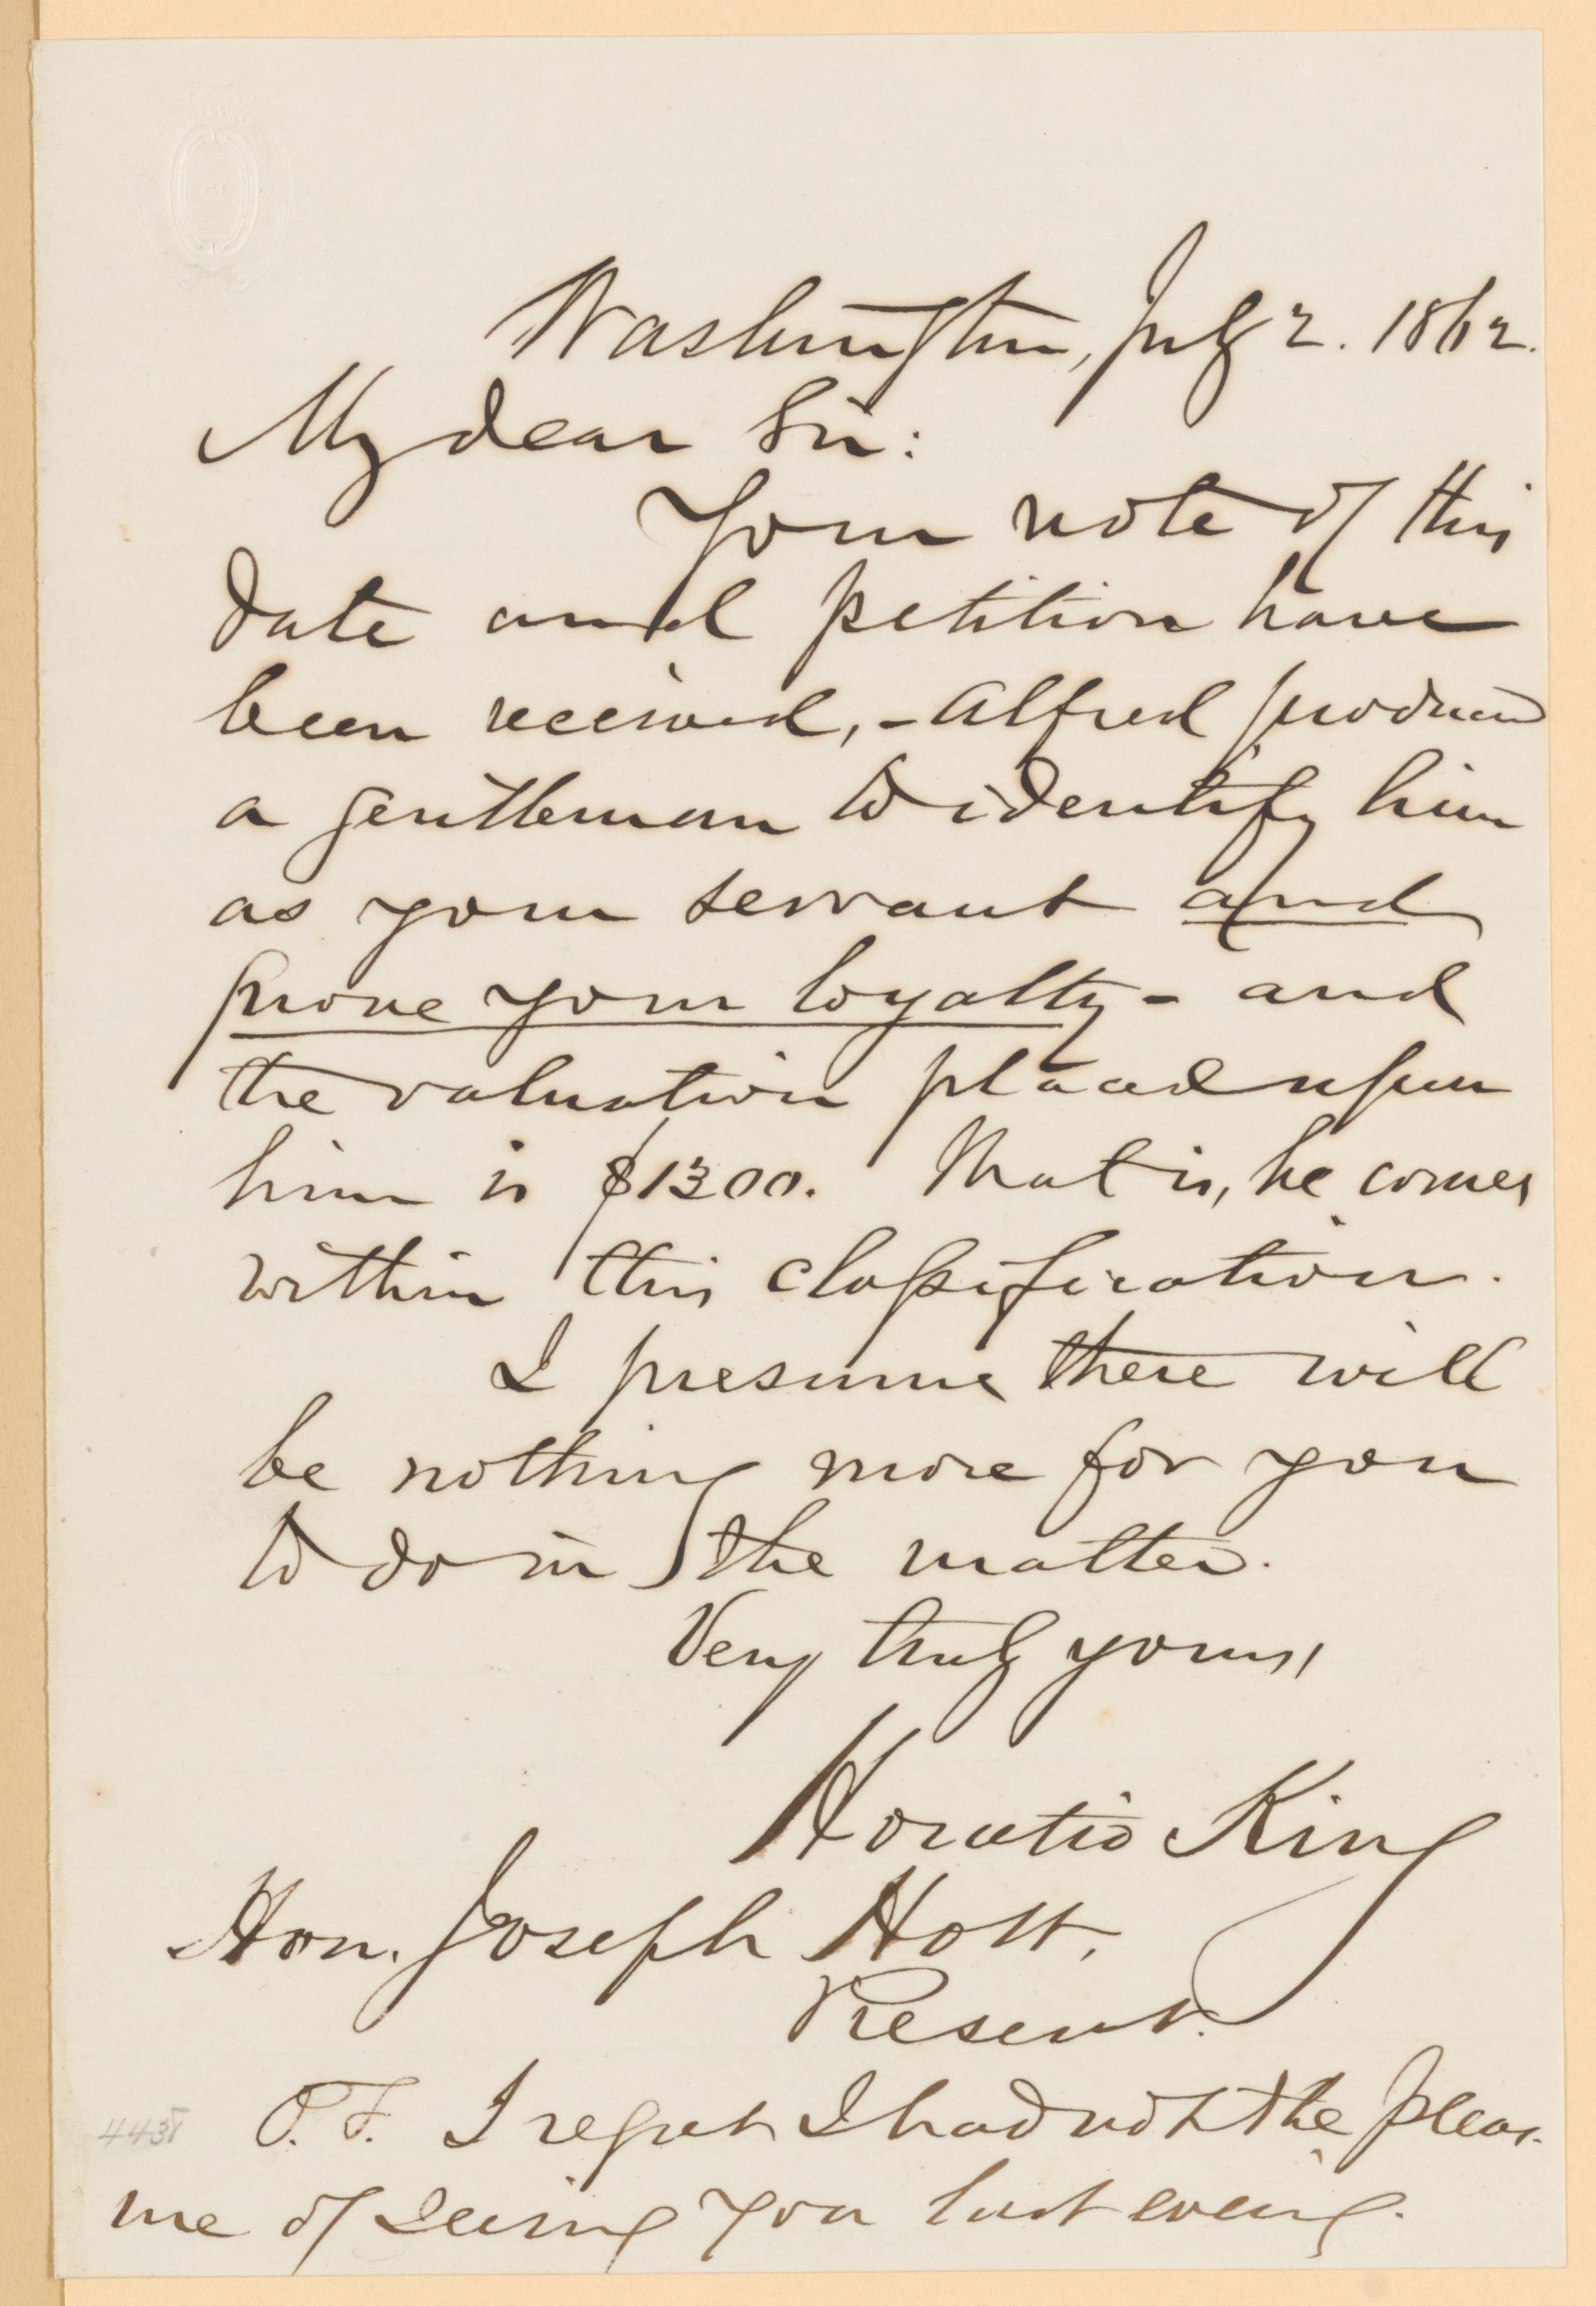 Washington, July 2. 1862.
My dear Sir:
Your note of this
date and petition have
been received, - Alfred produced
a gentleman to identify him
as your servant and
prove your loyalty - and
the valuation placed upon
him is $1300. That is, he comes
within this classification.
I presume there will
be nothing more for you
to do in the matter.
Very truly yours,
Horatio King
Hon. Joseph Holt,
Present.
P.S. I regret I had not the pleas-
ure of seeing you last evening.
4435